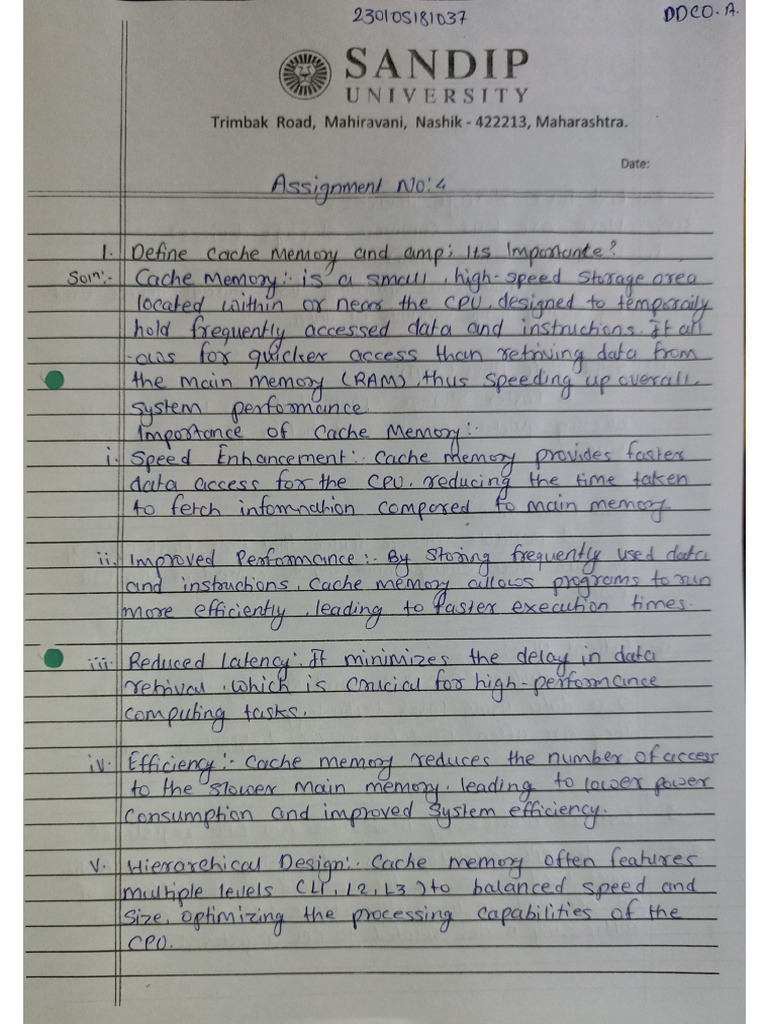 230105181037
DDCO-A.
SANDIP
UNIVERSITY
Trimbak Road, Mahiravani, Nashik - 422213, Maharashtra.
Date:
Assignment No:4
1. Define Cache Memory and amp; Its Importante?
Soln:- Cache Memory:- is a small, high-speed storage area
located within or near the CPU, designed to temporaily
hold frequently accessed data and instructions. It all
-ows for quicker access than retriving data from
the main memory (RAM), thus speeding up overall
system performance.
Importance of Cache Memory:-
i. Speed Enhancement:- Cache memory provides faster
data access for the CPU, reducing the time taken
to fetch infomnation compared to main memory
ii. Improved Performance:- By storing frequently used data
and instructions, Cache memory allows programs to run
more efficiently, leading to faster execution times.
iii. Reduced Latency:- It minimizes the delay in data
retrival, which is crucial for high-performance
computing tasks.
iv. Efficiency:- Cache memory reduces the number of access
to the slower main memory, leading to lower power
consumption and improved system efficiency.
v. Hierarchical Design:- Cache memory often features
multiple levels (L1, L2, L3) to balanced speed and
size, optimizing the processing capabilities of the
CPU.